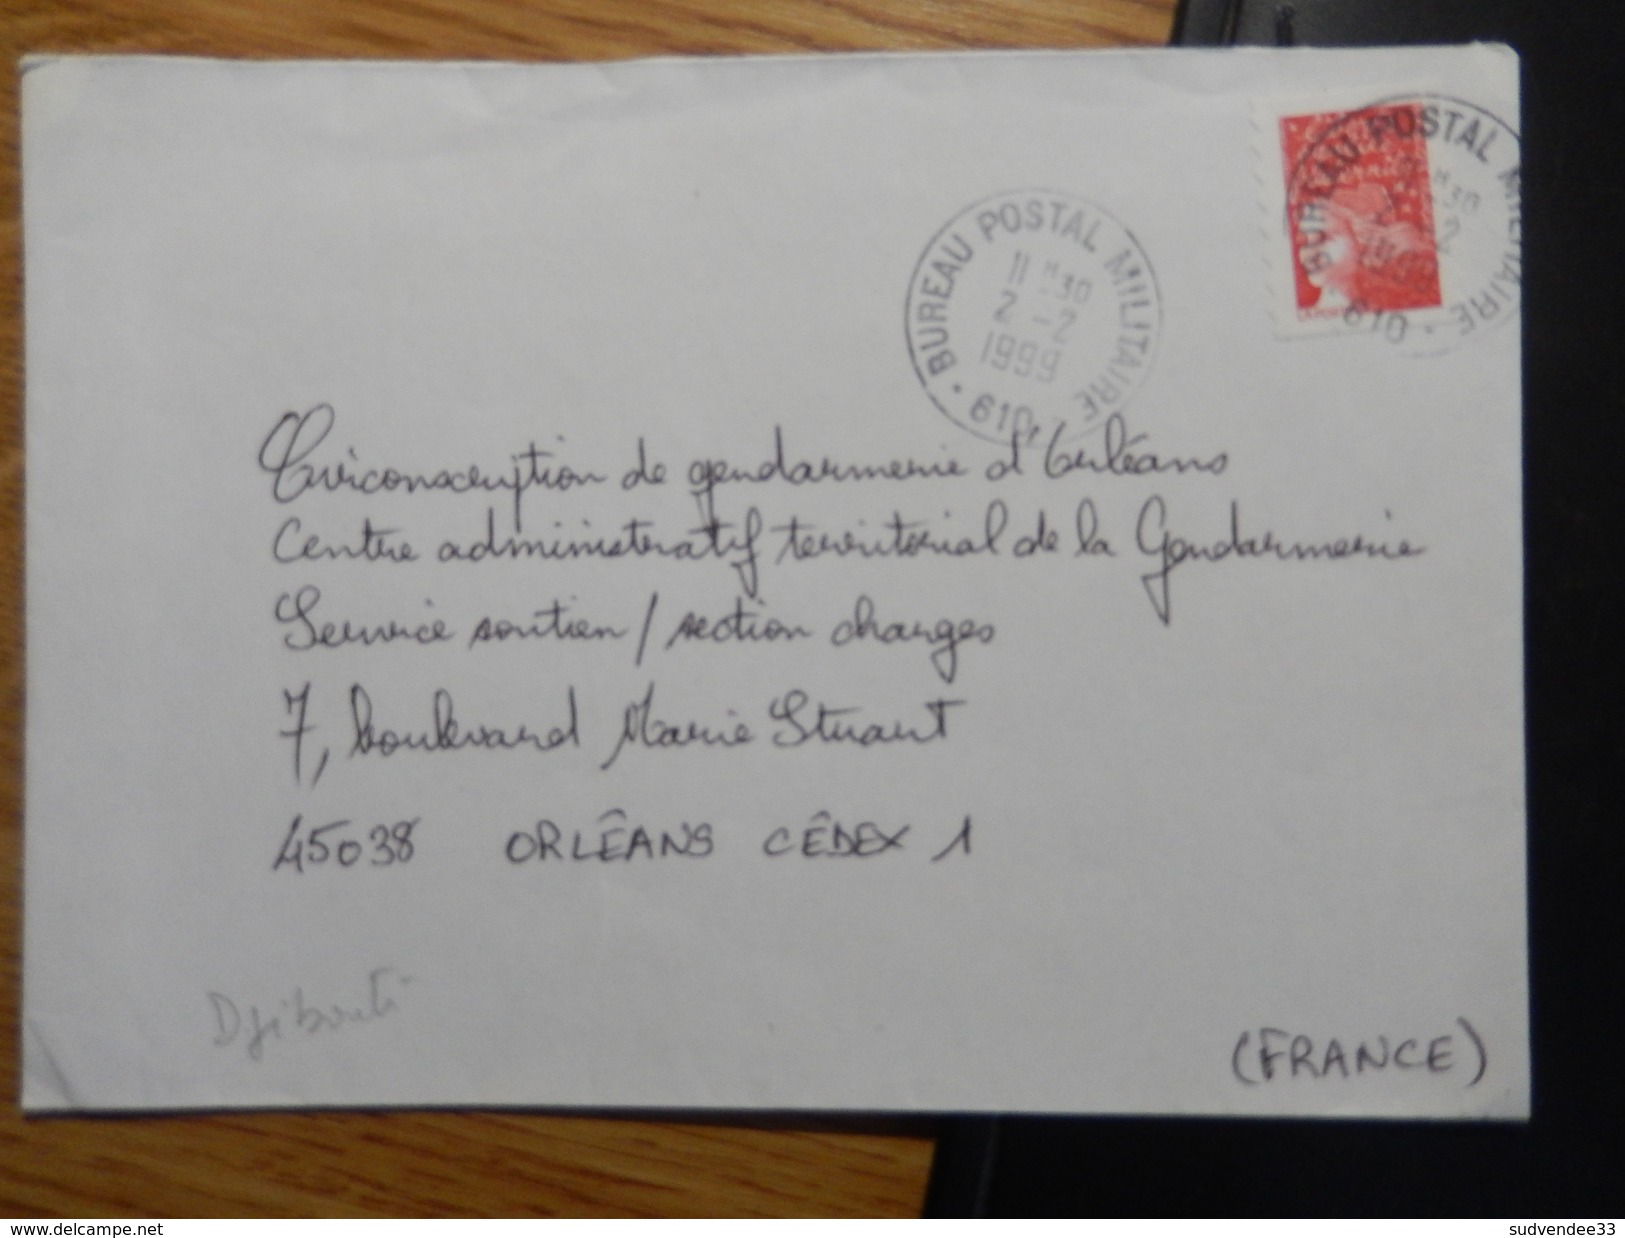 BUREAU POSTAL MILITAIRE
11 H 30
2 -2
1999
610
BUREAU POSTAL MILITAIRE
H30
2 2
1999
610
Circonscription de gendarmerie d'Orléans
Centre administratif territorial de la Gendarmerie
Service soutien / section charges
7, boulevard Marie Stuart
45038 ORLÉANS CÉDEX 1
Djibouti
(FRANCE)
www.delcampe.net
sudvendee33